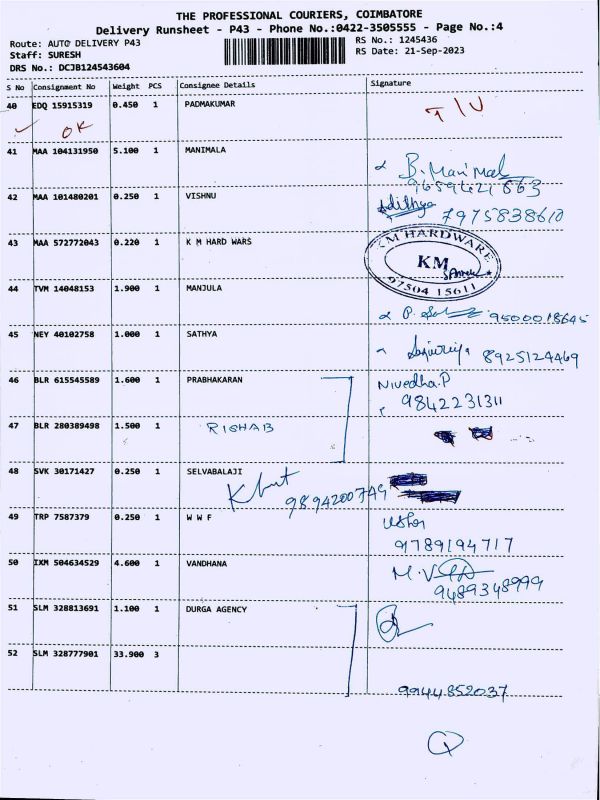 THE PROFESSIONAL COURIERS, COIMBATORE
Delivery Runsheet - P43 - Phone No.:0422-3505555 - Page No.:4
Route: AUTO DELIVERY P43
Staff: SURESH
DRS No.: DCJB124543604
RS No.: 1245436
RS Date: 21-Sep-2023
S No Consignment No Weight PCS Consignee Details Signature
40 EDQ 15915319 0.450 1 PADMAKUMAR
OK
41 MAA 104131950 5.100 1 MANIMALA
B. Manimal
9659421863
42 MAA 101480201 0.250 1 VISHNU
Adithya 7975838610
43 MAA 572772043 0.220 1 K M HARD WARS
KM HARDWARE
KM
97504 15611
44 TVM 14048153 1.900 1 MANJULA
9500018645
45 NEY 40102758 1.000 1 SATHYA
8925124469
46 BLR 615545589 1.600 1 PRABHAKARAN
Nivedha.P
9842231311
47 BLR 280389498 1.500 1 RISHAB
48 SVK 30171427 0.250 1 SELVABALAJI
9894200749
49 TRP 7587379 0.250 1 W W F
Usha
9789194717
50 IXM 504634529 4.600 1 VANDHANA
M.V
9489348999
51 SLM 328813691 1.100 1 DURGA AGENCY
52 SLM 328777901 33.900 3
9944852037